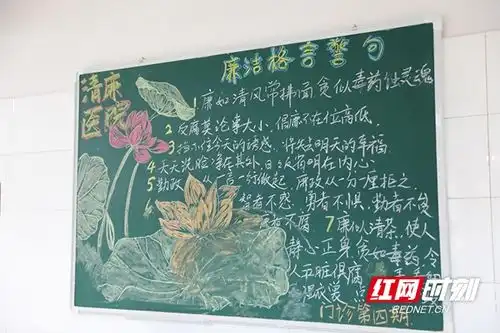 廉洁格言警句
清廉医院
1.廉如清风常拂面贪似毒药蚀灵魂
2反腐莫论事大小,倡廉不在位高低,
3挡不住今天的诱惑,将失去明天的幸福
4天天洗脸净在外,日三省明在内心
5勤政从一言一行做起,廉政从一分一厘拒之,
6智者不惑,勇者不惧,勤者不贫
廉者不腐 7廉似清茶,使人
静心正身贪如毒药,令
人五脏俱腐
门诊第四期
红网时刻
REDNET.CN